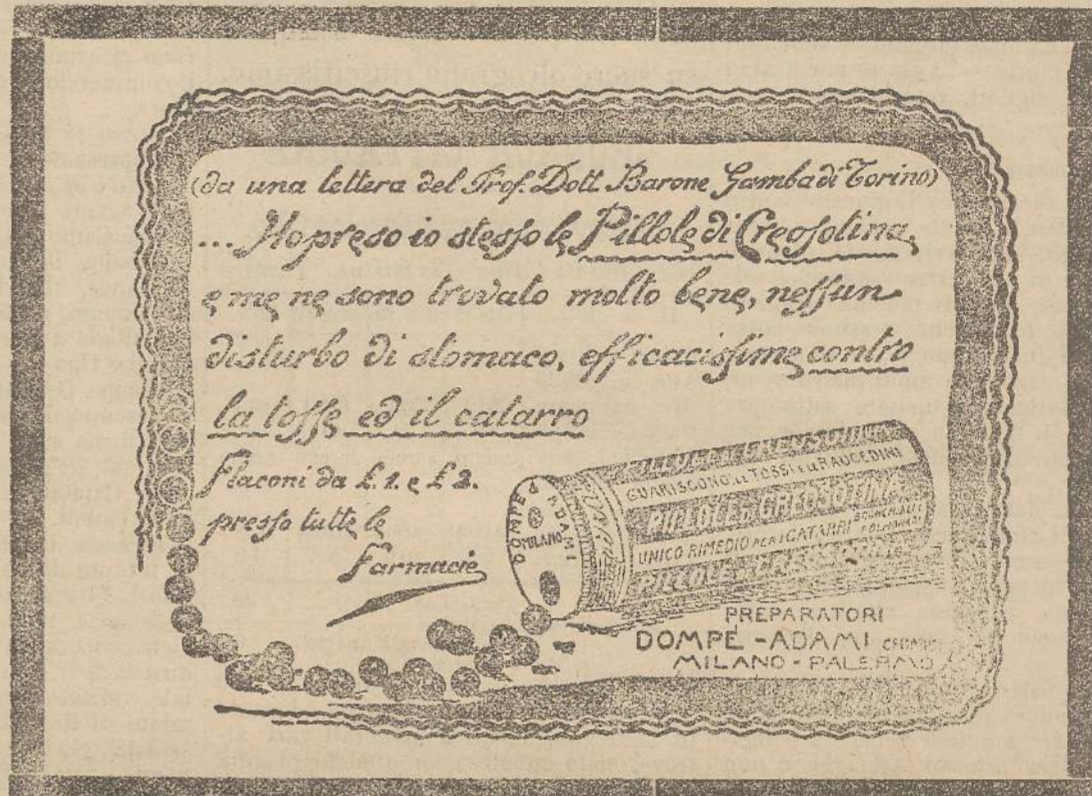 (da una lettera del Prof. Dott. Barone Gamba di Torino)
... Ho preso io stesso le Pillole di Creosotina,
e me ne sono trovato molto bene, nessun
disturbo di stomaco, efficacissime contro
la tosse ed il catarro
Flaconi da £.1. e £2.
presso tutte le
Farmacie
DOMPÉ & ADAMI
MILANO
PILLOLE DI CREOSOTINA
GUARISCONO LE TOSSI E LE RAUCEDINI
PILLOLE DI CREOSOTINA
UNICO RIMEDIO PER I CATARRI BRONCHIALI E POLMONARI
PILLOLE DI CREOSOTINA
PREPARATORI
DOMPÉ - ADAMI CHIMICI
MILANO - PALERMO